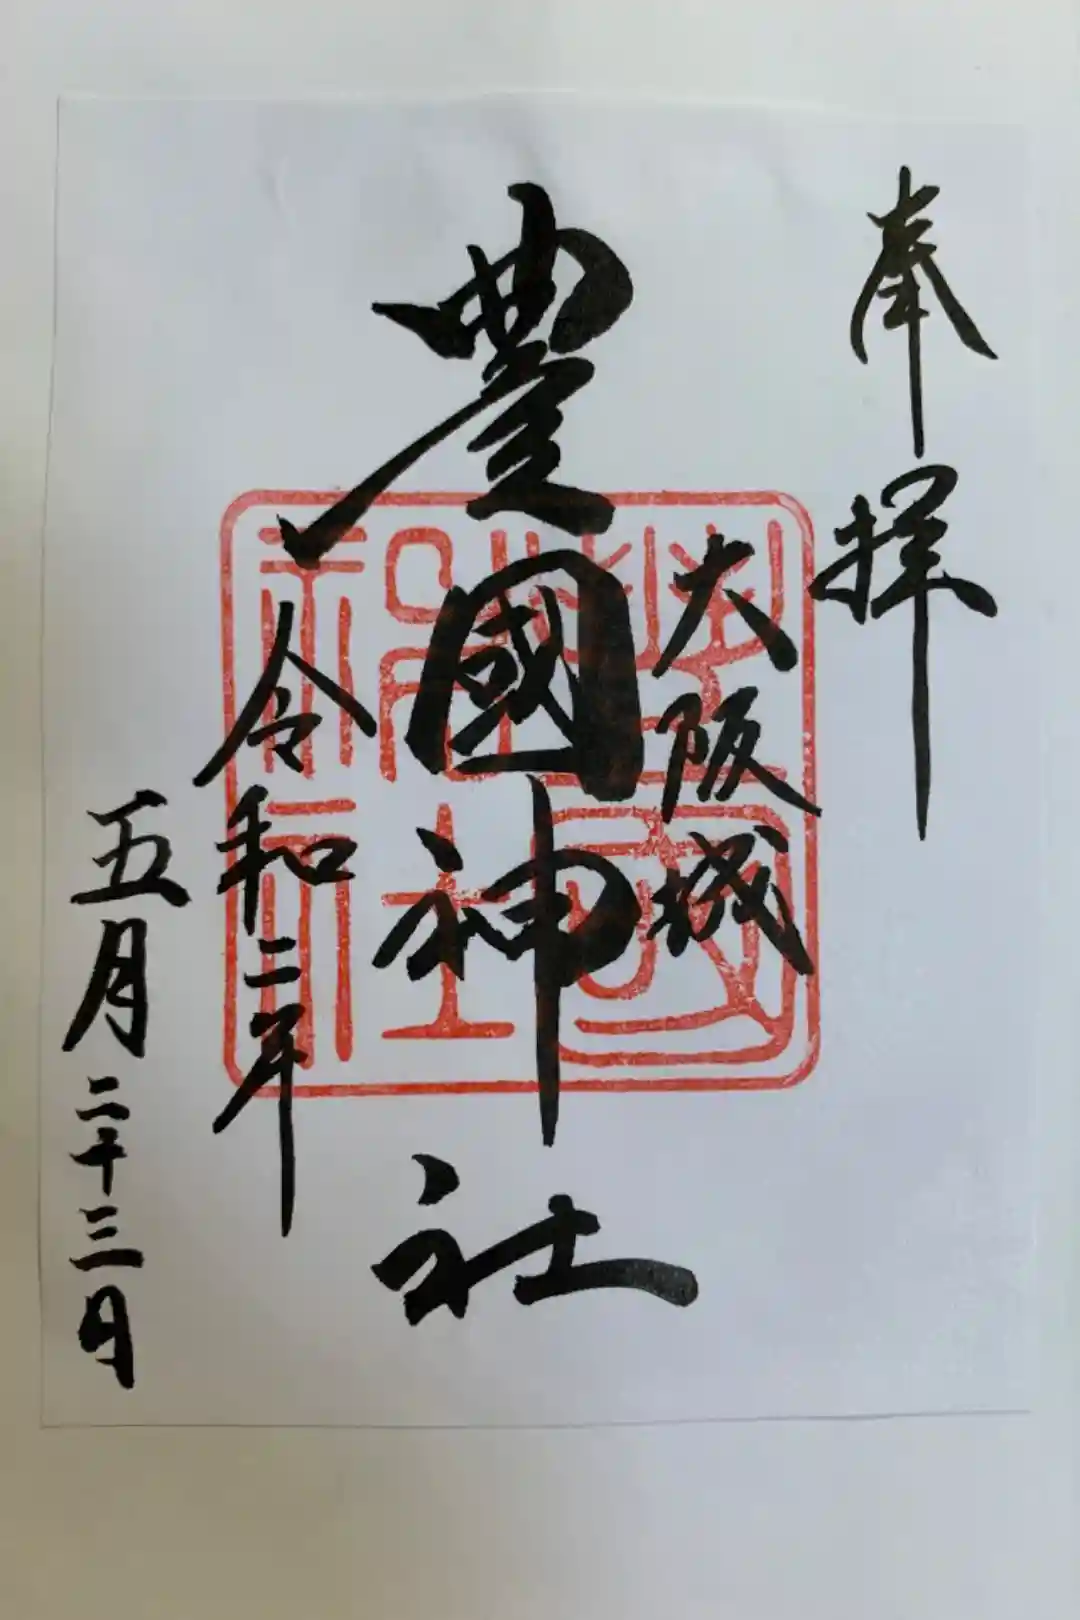 奉拝
大阪城
豊國神社
令和二年
五月二十三日